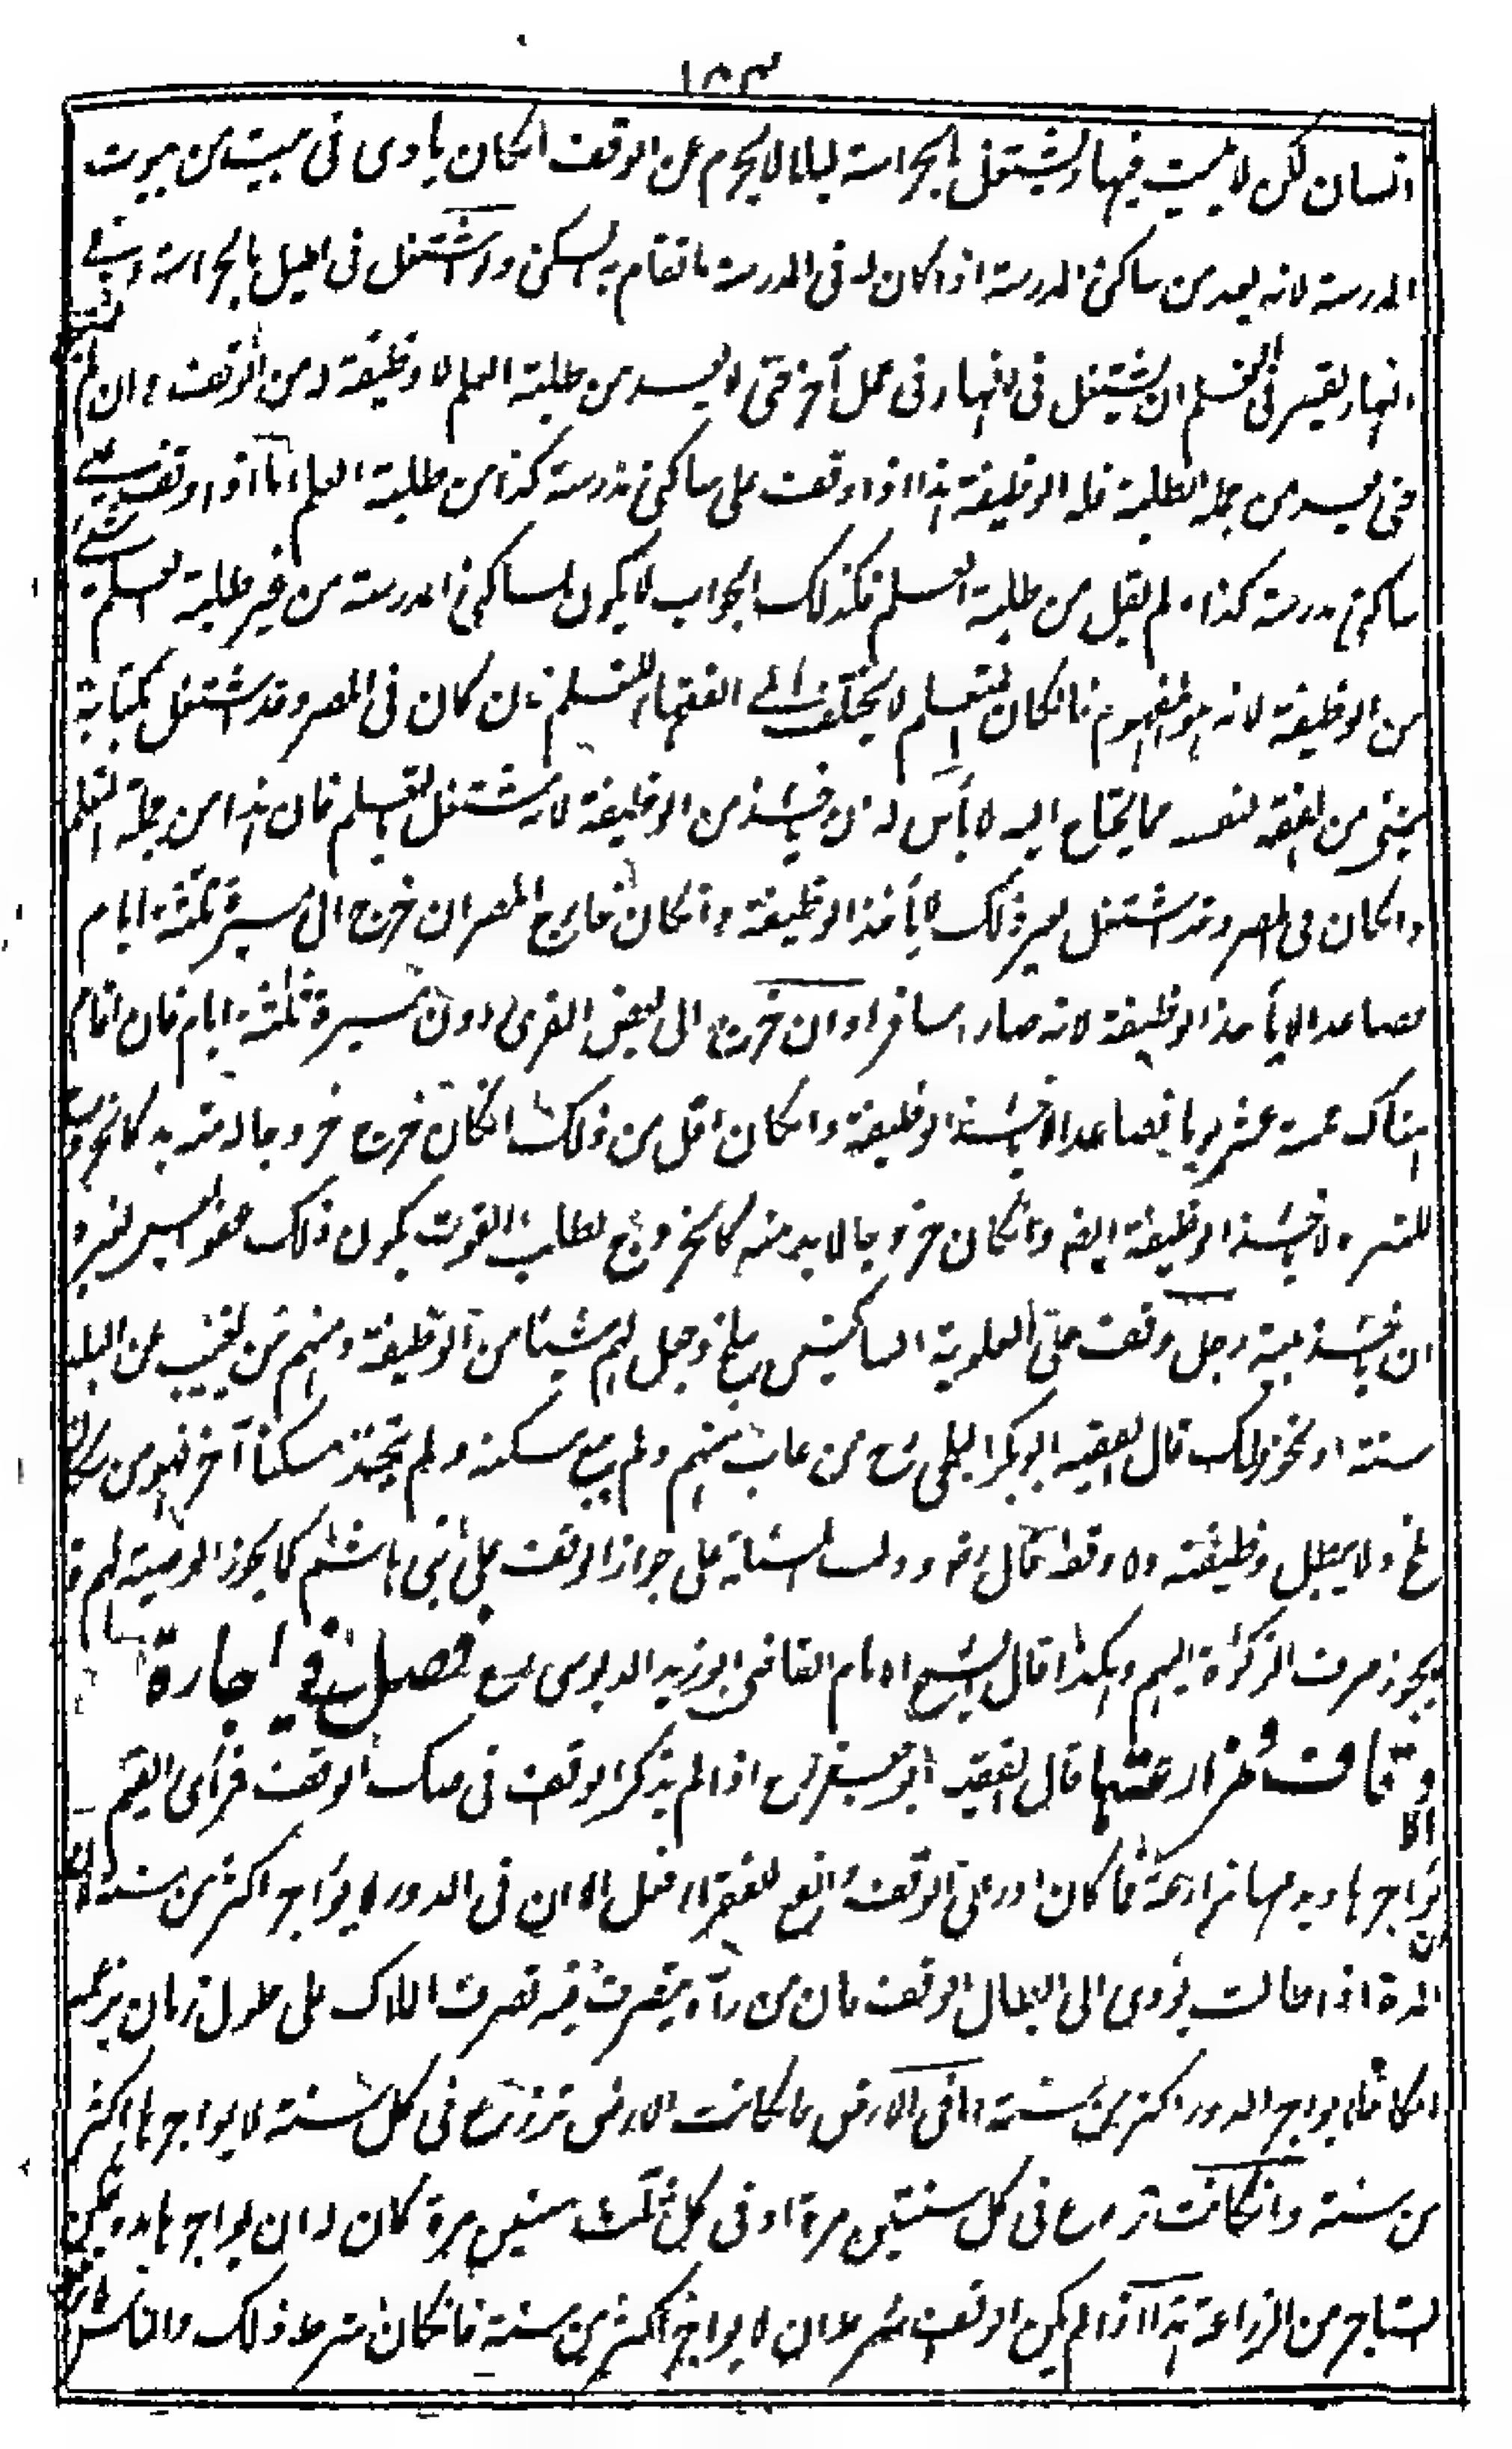 انسان لكن لا يبيت فيها ويشتغل بالحراسة ليلا لا يحرم عن الوقف انكان ياوى فى بيت من بيوت
المدرسة لانه يعد من ساكنى المدرسة اذا كان له فى المدرسة ما تقام به السكنى ولو اشتغل فى الليل بالحراسة وفى
النهار يقصر فى التعلم ان يشتغل فى النهار فى عمل آخر حتى لا يعد من طلبة العلم لا وظيفة له من الوقف وان لم يشتغل
حتى يعد من جملة الطلبة فله الوظيفة هذا اذا وقف على ساكنى مدرسة كذا من طلبة العلم اما اذا وقف على
ساكنى مدرسة كذا ولم يقل من طلبة العلم فكذلك الجواب لا يكون لساكنى المدرسة من غير طلبة العلم شئ
من الوظيفة لانه هو المفهوم فانكان المتعلم لا يختلف الى الفقهاء للتعلم فان كان فى المصر وقد اشتغل بكتابة
شئ من الفقه لنفسه مما يحتاج اليه لا بأس له ان يأخذ من الوظيفة لانه مشتغل بالتعلم فان هذا من جملة التعلم
وانكان فى المصر وقد اشتغل بغير ذلك لا يأخذ الوظيفة وانكان خارج المصر ان خرج الى مسيرة ثلثة ايام
فصاعدا لا يأخذ الوظيفة لانه صار مسافرا وان خرج الى بعض القرى دون مسيرة ثلثة ايام فان اقام
هناك خمسة عشر يوما فصاعدا لا يأخذ الوظيفة وانكان اقل من ذلك انكان خرج خروجا له منه بد كالخروج
للتنزه لا يأخذ الوظيفة ايضا وانكان خروجا لا بد منه كالخروج لطلب القوت يكون ذلك عفوا ليس لغيره
ان يأخذ بيته رجل وقف على العلوية الساكنين ببلخ وجعل لهم شيئا من الوظيفة ومنهم من يغيب عن البلد
سنة او نحو ذلك قال الفقيه ابو بكر البلخى رح من غاب منهم ولم يبع مسكنه ولم يتخذ مسكنا آخر فهو من سكان
بلخ ولا يبطل وظيفته ولا وقفه قال رض ودلت المسئلة على جواز الوقف على بنى هاشم كما يجوز الوصية لهم و
يجوز صرف الزكوة اليهم وهكذا قال الشيخ الامام القاضى ابو زيد الدبوسى رح فصل فى اجارة
الاوقاف ومزارعتها قال الفقيه ابو جعفر رح اذا لم يذكر الوقف فى صك الوقف فرأى القيم
ان يواجرها ويدفعها مزارعة فما كان ادر على الوقف وانفع للفقراء فعل الا ان فى الدور لا يواجر اكثر من سنة لان
المدة اذا طالت يؤدى الى ابطال الوقف فان من رآه يتصرف فيه تصرف الملاك على طول زمان يزعمه
مالكا فلا يواجر الدور اكثر من سنة اما فى الارض فانكانت الارض تزرع فى كل سنة لا يواجرها اكثر
من سنة وانكانت تزرع فى كل سنتين مرة او فى كل ثلث سنين مرة كان له ان يواجرها مدة يتمكن
المستاجر من الزراعة هذا اذا لم يكن الوقف شرط ان لا يواجر اكثر من سنة فانكان شرط ذلك والناس